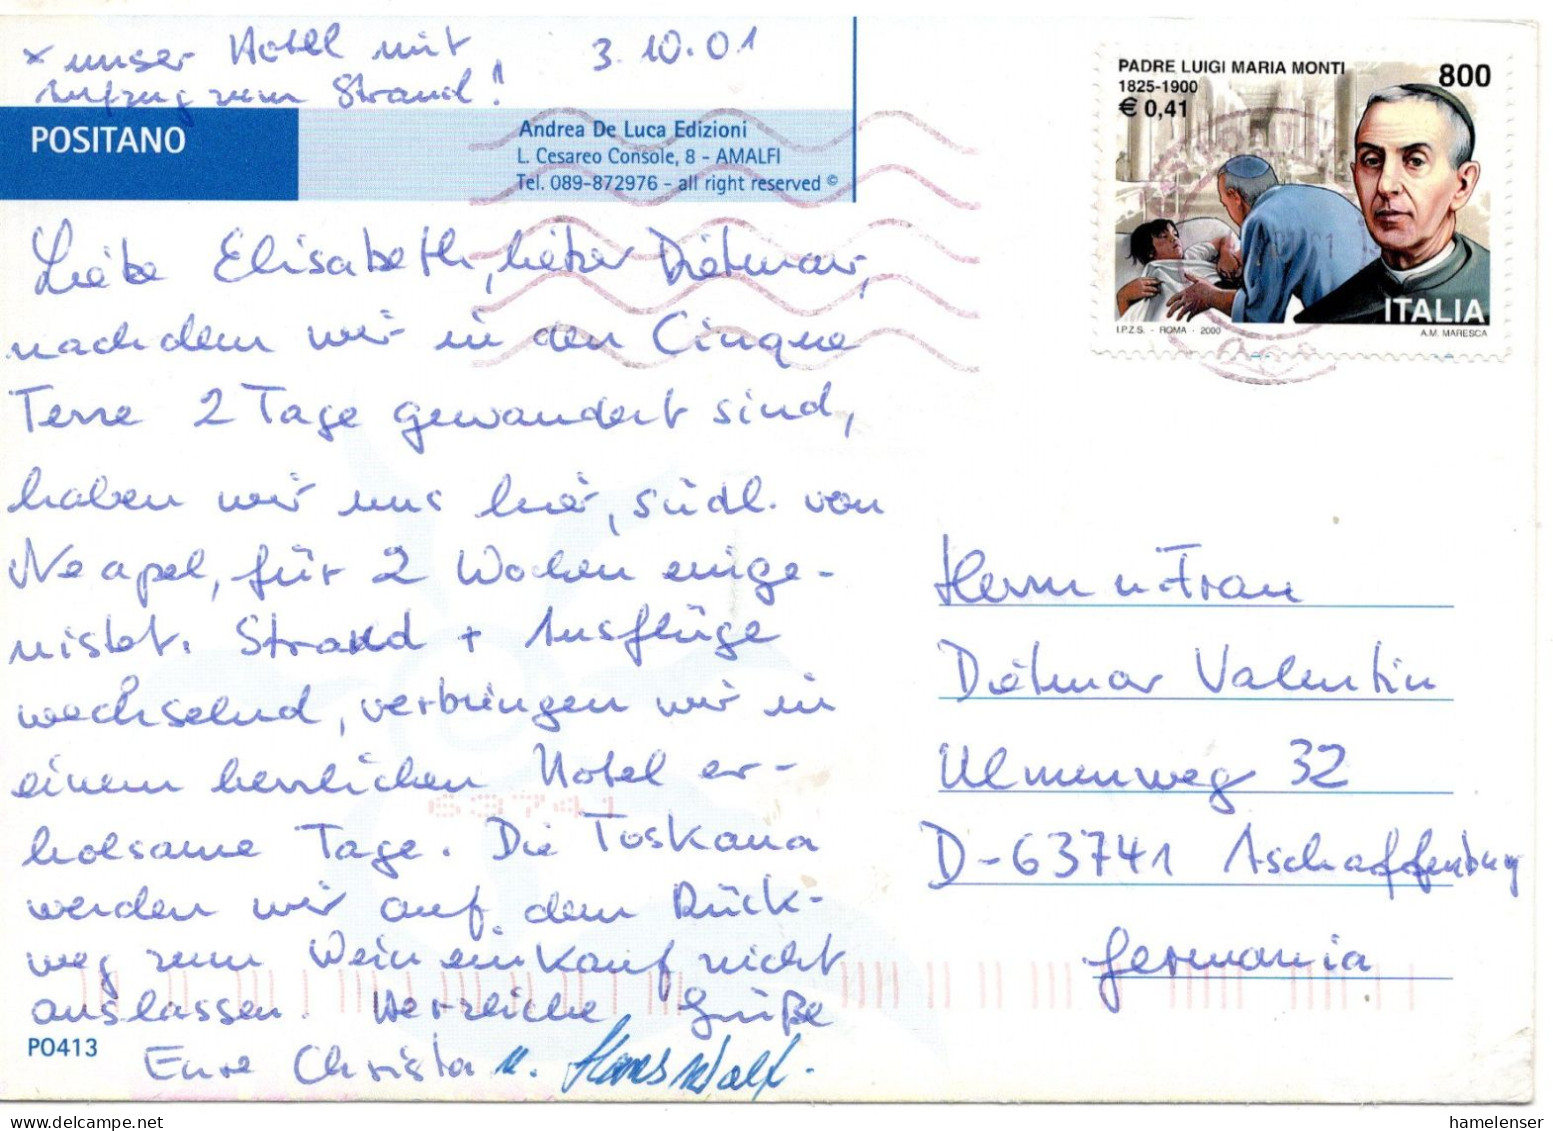 x unser Hotel mit 3.10.01
Aufzug zum Strand!
POSITANO
Andrea De Luca Edizioni
L. Cesareo Console, 8 - AMALFI
Tel. 089-872976 - all right reserved ©
PADRE LUIGI MARIA MONTI 800
1825-1900
€ 0,41
ITALIA
I.P.Z.S. - ROMA - 2000 A.M. MARESCA
Liebe Elisabeth, lieber Dietmar,
nachdem wir in den Cinque
Terre 2 Tage gewandert sind,
haben wir uns hier, südl. von
Neapel, für 2 Wochen einge-
nistet. Strand + Ausflüge
wechselnd, verbringen wir in
einem herrlichen Hotel er-
holsame Tage. Die Toskana
werden wir auf dem Rück-
weg zum Weineinkauf nicht
auslassen. Herzliche Grüße
Eure Christa u. Hans Wolf.
PO413
63741
Herrn u. Frau
Dietmar Valentin
Ulmenweg 32
D-63741 Aschaffenburg
Germania
hamelenser